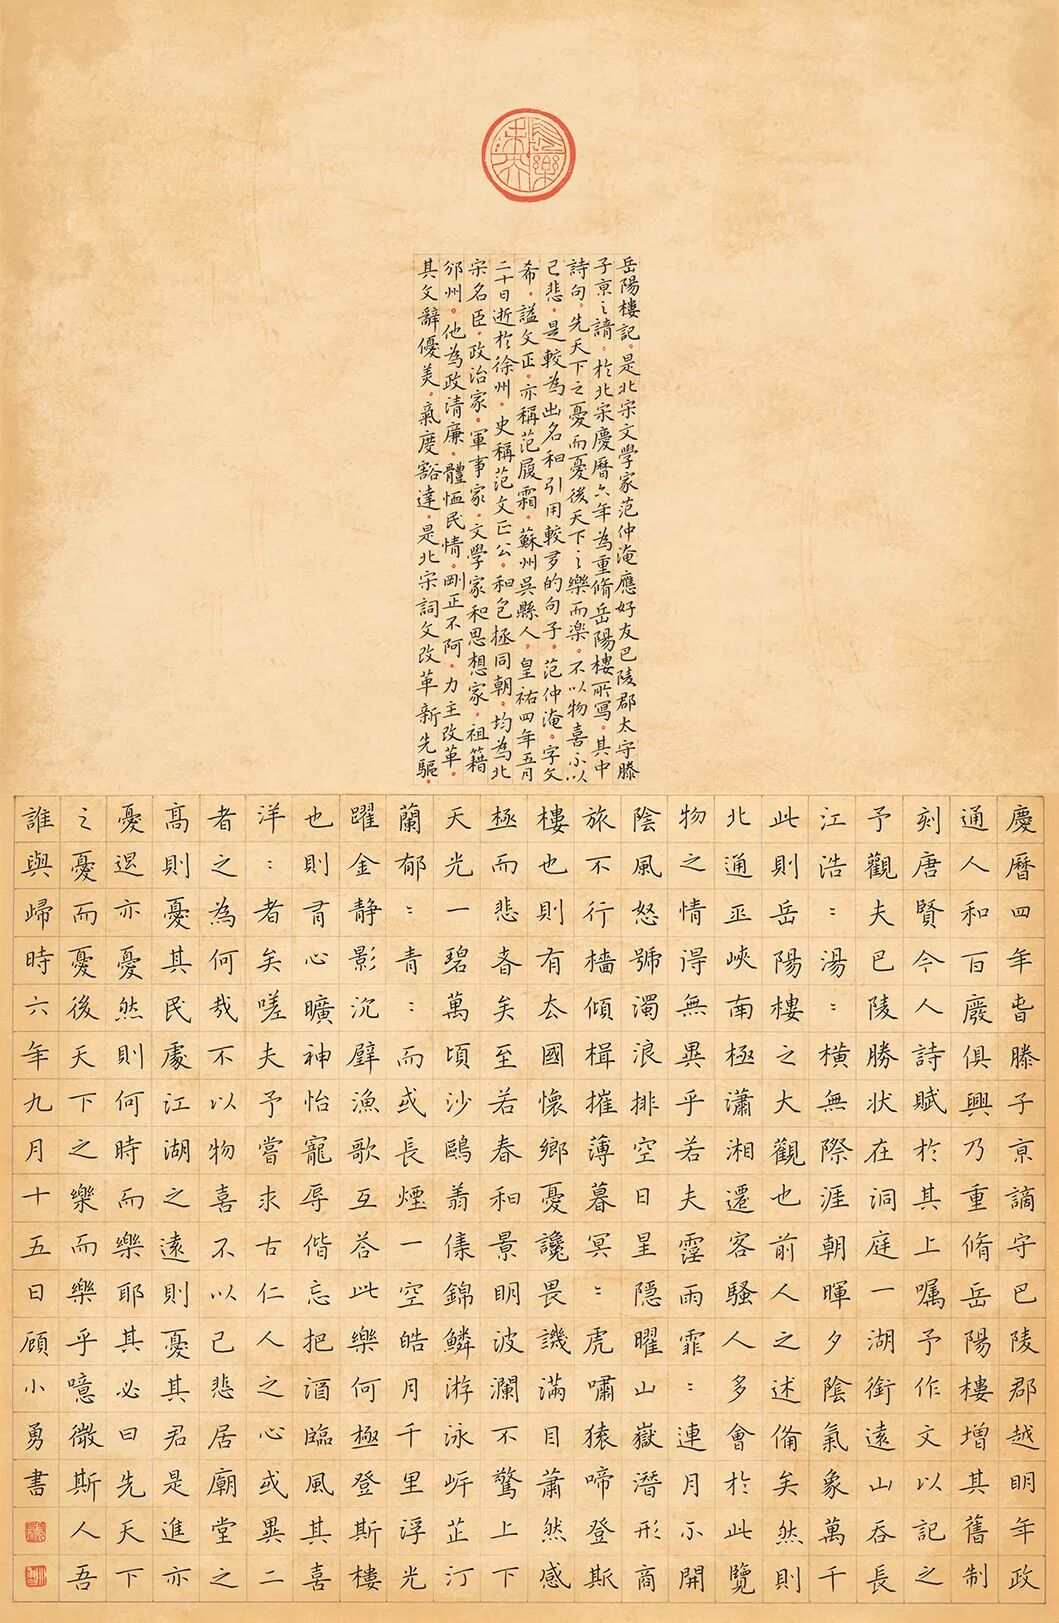 長樂未央
岳陽樓記。是北宋文學家范仲淹應好友巴陵郡太守滕
子京之請。於北宋慶曆六年為重脩岳陽樓所寫。其中
詩句。先天下之憂而憂後天下之樂而楽。不以物喜不以
己悲。是較為出名和引用較多的句子。范仲淹。字文
希。謚文正。亦稱范履霜。蘇州吳縣人。皇祐四年五月
二十日逝於徐州。史稱范文正公。和包拯同朝。均為北
宋名臣。政治家。軍事家。文學家和思想家。祖籍
邠州。他為政清廉。體恤民情。剛正不阿。力主改革。
其文辭優美。氣度豁達。是北宋詞文改革新先驅。
慶曆四年旾滕子京謫守巴陵郡越明年政
通人和百廢俱興乃重脩岳陽樓增其舊制
刻唐賢今人詩賦於其上嘱予作文以記之
予觀夫巴陵勝狀在洞庭一湖銜遠山吞長
江浩：湯：橫無際涯朝暉夕陰氣象萬千
此則岳陽樓之大觀也前人之述備矣然則
北通巫峽南極瀟湘遷客騷人多會於此覽
物之情得無異乎若夫霪雨霏：連月不開
陰風怒號濁浪排空日星隱曜山嶽潛形商
旅不行檣傾楫摧薄暮冥：虎嘯猿啼登斯
樓也則有去國懷鄉憂讒畏譏滿目蕭然感
極而悲者矣至若春和景明波瀾不驚上下
天光一碧萬頃沙鷗翕集錦鱗游泳岸芷汀
蘭郁：青：而或長煙一空皓月千里浮光
躍金静影沉璧漁歌互答此樂何極登斯樓
也則有心曠神怡寵辱偕忘把酒臨風其喜
洋：者矣嗟夫予嘗求古仁人之心或異二
者之為何哉不以物喜不以己悲居廟堂之
高則憂其民處江湖之遠則憂其君是進亦
憂退亦憂然則何時而樂耶其必曰先天下
之憂而憂後天下之樂而樂乎噫微斯人吾
誰與歸時六年九月十五日顧小勇書